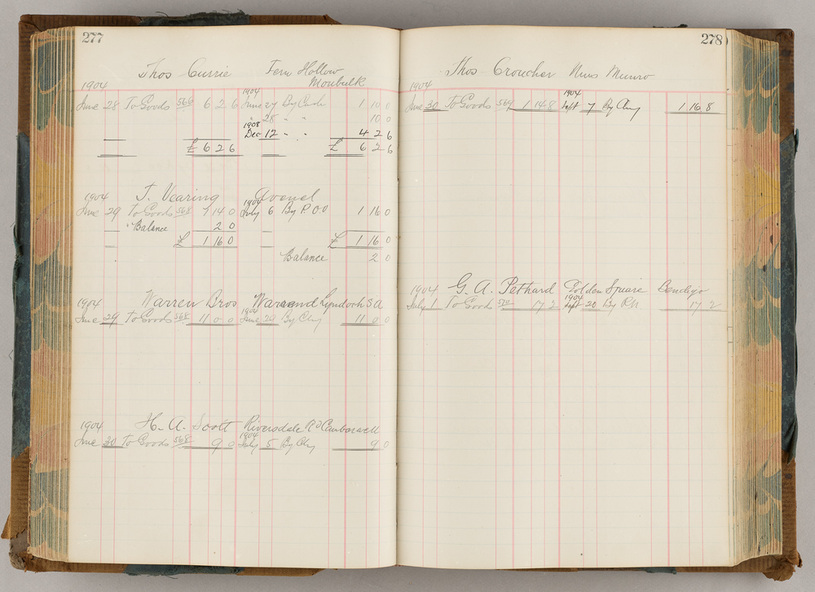 277
Thos Currie Fern Hollow
Monbulk
1904 1904
June 28 To Goods 568 6 2 6 June 27 By Cash 1 10 0
" 28 " " 10 0
1905
Dec 12 " " 4 2 6
£ 6 2 6 £ 6 2 6
1904 T. Vearing Avenel
June 29 To Goods 568 1 14 0 July 6 By P.O.O 1 16 0
" Balance 2 0
£ 1 16 0 £ 1 16 0
Balance 2 0
1904 Warren Bros Lyndoch SA
1904
June 29 To Goods 568 11 0 0 June 20 By Chq 11 0 0
1904 H. A. Scott Riversdale Rd Camberwell
1904
June 30 To Goods 568 9 0 July 5 By Chq 9 0
278
1904 Thos Croucher Munro
1904
June 30 To Goods 569 1 16 8 Sept 7 By Chq 1 16 8
1904 G. A. Pethard Golden Square Bendigo
1904
July 1 To Goods 570 17 2 Sept 20 By P.N. 17 2